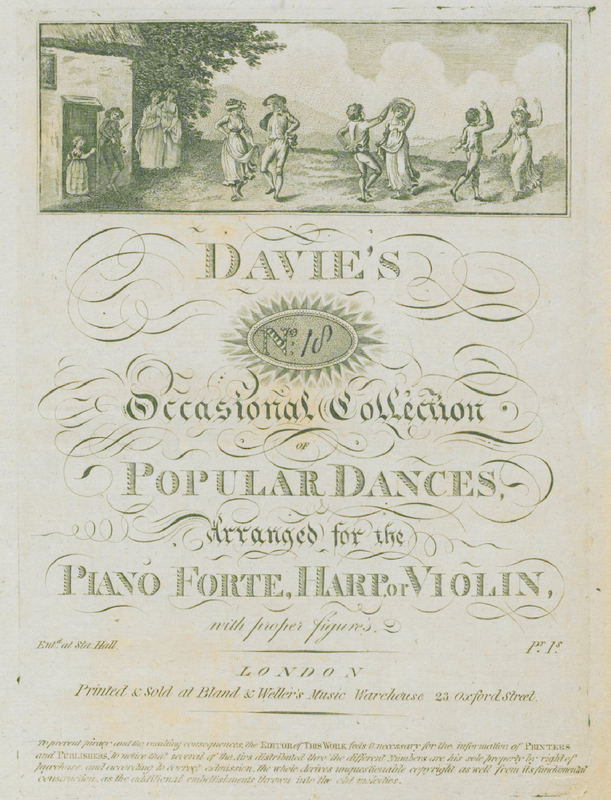 DAVIE'S
No. 18
Occasional Collection
OF
POPULAR DANCES,
Arranged for the
PIANO FORTE, HARP, or VIOLIN,
with proper figures.
Entd. at Sta. Hall. Pr. 1s.
LONDON
Printed & Sold at Bland & Weller's Music Warehouse 23 Oxford Street.
To prevent piracy and the resulting consequences, the EDITOR of THIS WORK feels it necessary for the information of PRINTERS
and PUBLISHERS, to notice that several of the Airs distributed thro' the different Numbers are his sole property by right of
purchase, and according to correct admission, the whole derives unquestionable copyright as well from its fundamental
construction, as the additional embellishments thrown into the old melodies.